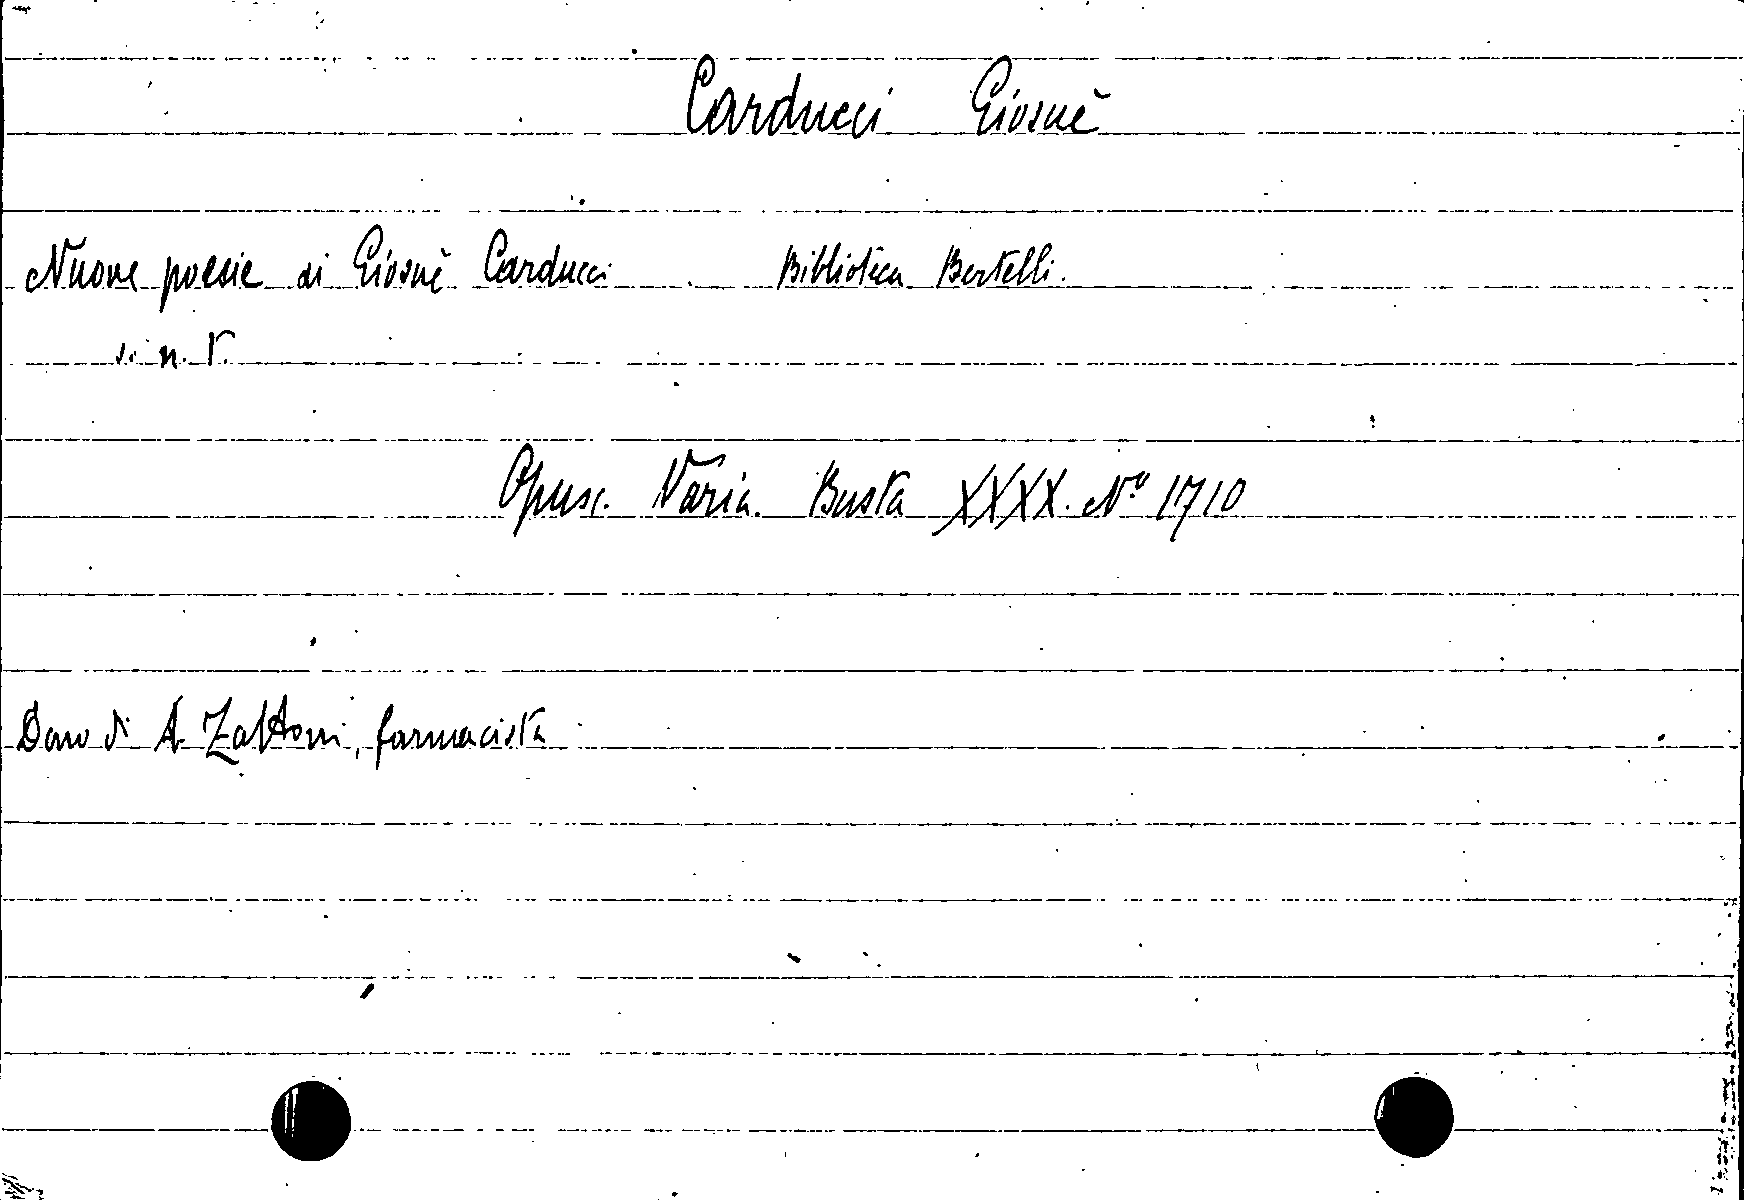 Carducci Giosuè
Nuove poesie di Giosuè Carducci Biblioteca Bertelli.
s. n. T.
Opusc. Varia. Busta XXXX. Nº 1710
Dono di A. Zattoni, farmacista